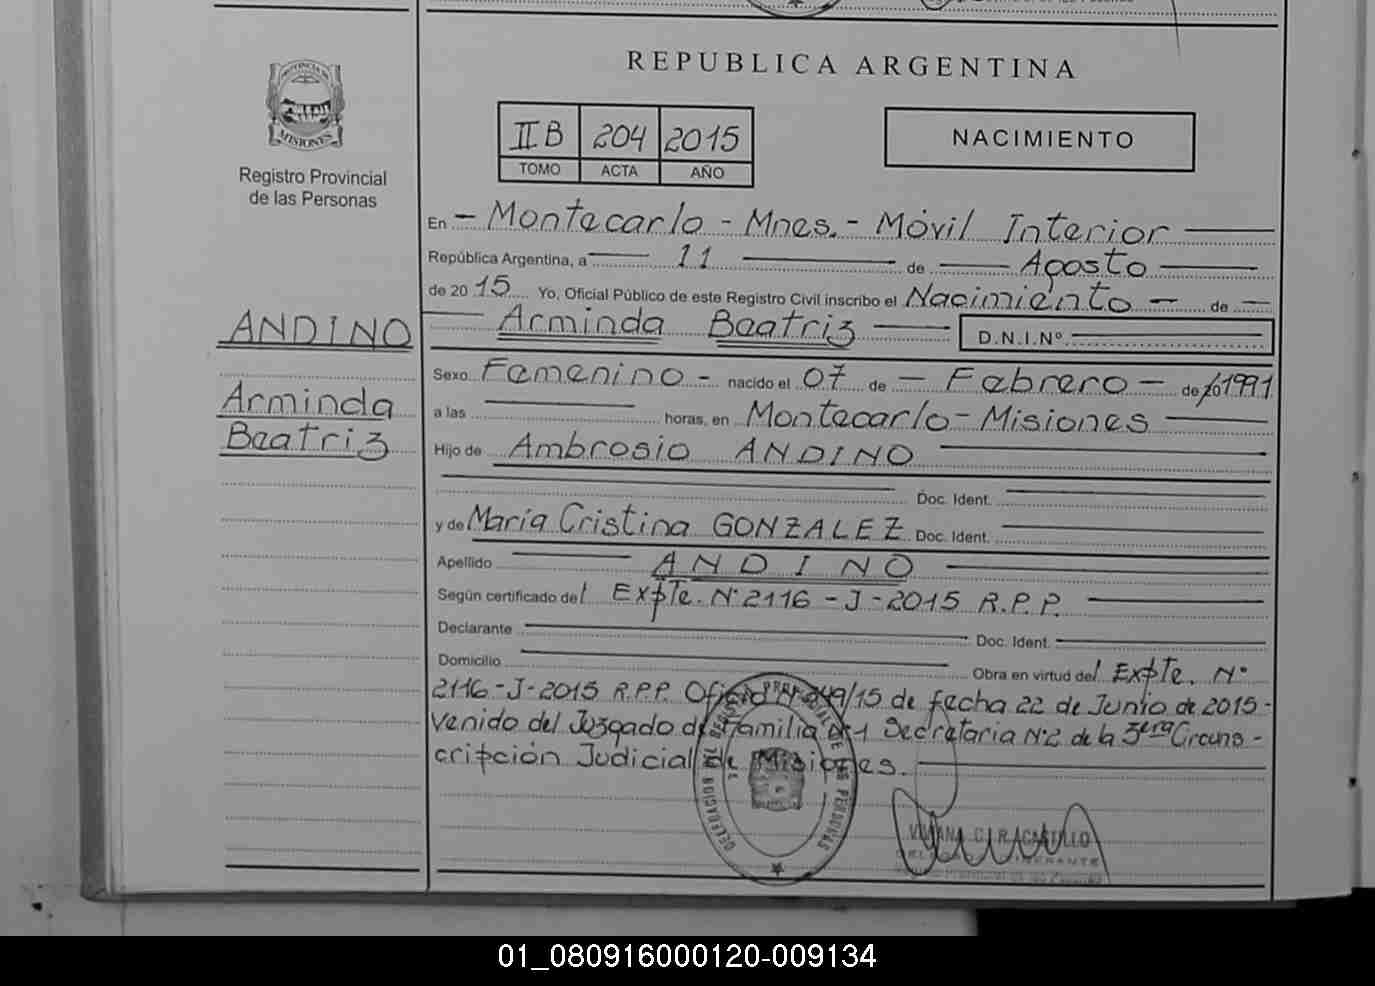 REPUBLICA ARGENTINA
PROVINCIA DE
MISIONES
Registro Provincial
de las Personas
II B 204 2015
TOMO ACTA AÑO
NACIMIENTO
En - Montecarlo - Mnes. - Móvil Interior
República Argentina, a 11 de Agosto
de 2015 Yo, Oficial Público de este Registro Civil inscribo el Nacimiento - de -
Arminda Beatriz D.N.I.Nº
ANDINO
Arminda
Beatriz
Sexo Femenino - nacido el 07 de - Febrero - de 1991
a las horas, en Montecarlo - Misiones
Hijo de Ambrosio ANDINO
Doc. Ident.
y de María Cristina GONZALEZ Doc. Ident.
Apellido ANDINO
Según certificado del Expte. Nº 2116 - J - 2015 R.P.P.
Declarante Doc. Ident.
Domicilio Obra en virtud del Expte. Nº
2116 - J - 2015 R.P.P. Oficio Nº 849/15 de fecha 22 de Junio de 2015 -
venido del Juzgado de Familia Nº 1 Secretaria Nº 2 de la 3era Circuns -
cripción Judicial de Misiones.
01_080916000120-009134